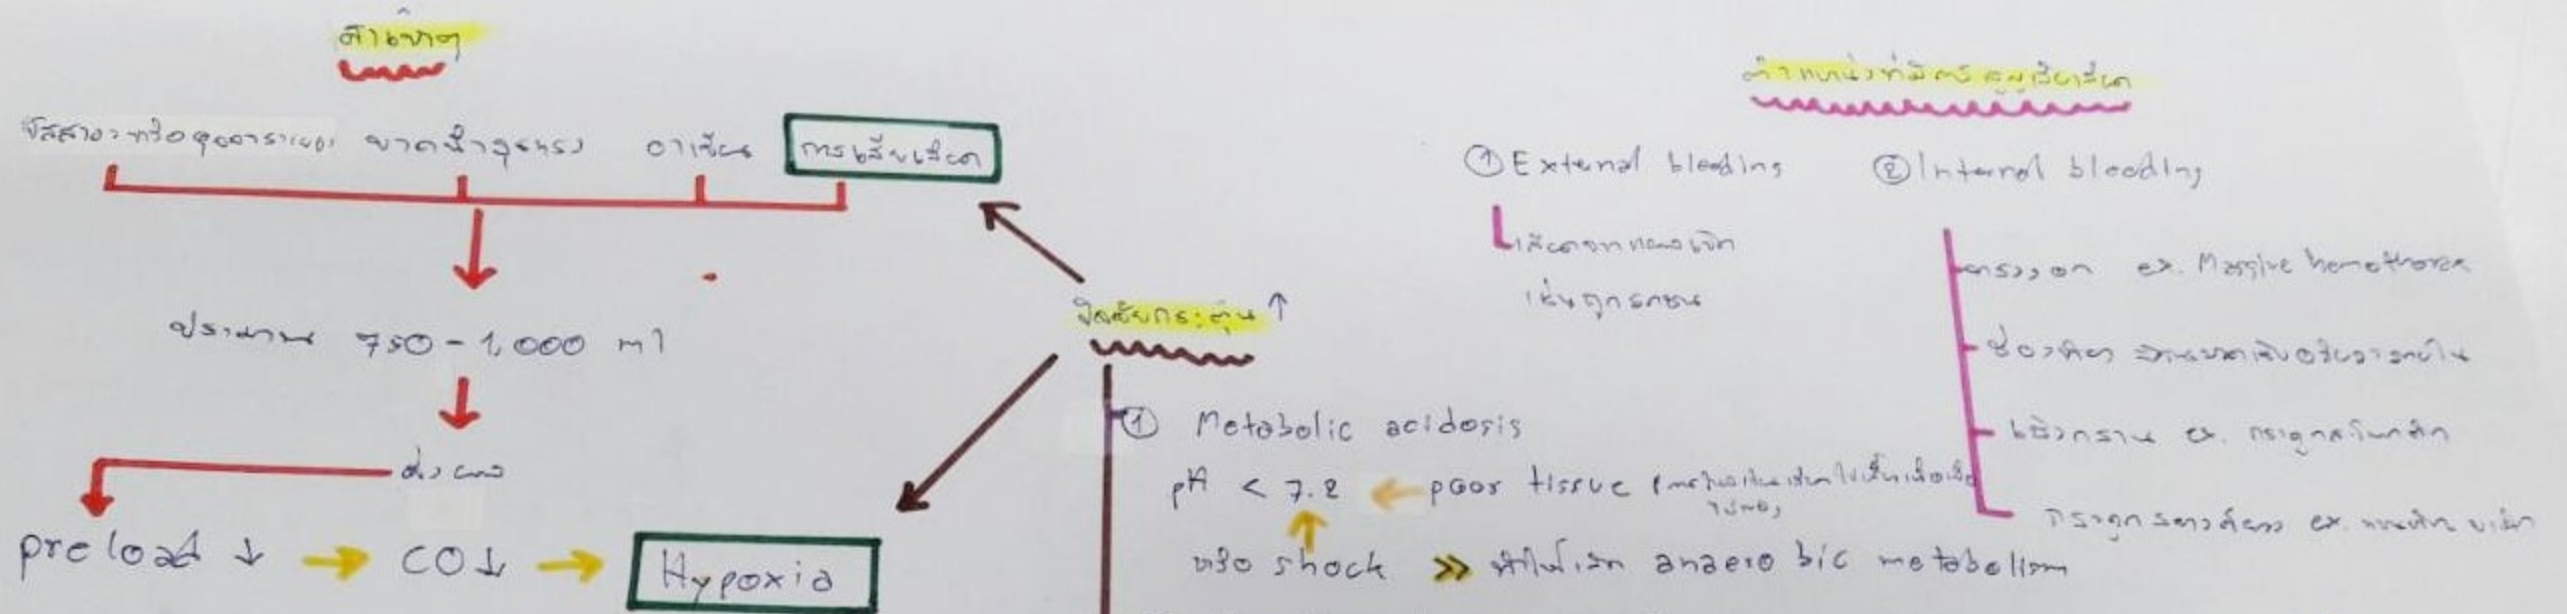 สาเหตุ
ปัสสาวะหรืออุจจาระเยอะ ขาดน้ำรุนแรง อาเจียน การเสียเลือด
ประมาณ 750 - 1,000 ml
ส่งผล
preload ↓ → CO↓ → Hypoxia
ปัจจัยกระตุ้น ↑
① Metabolic acidosis
pH < 7.2 ← poor tissue
หรือ shock » ทำให้เกิด anaerobic metabolism
ตำแหน่งที่มีการสูญเสียเลือด
① External bleeding
เลือดจากแผลเปิด
เช่นถูกรถชน
② Internal bleeding
ทรวงอก ex. Massive hemothorax
ช่องท้อง
เชิงกราน ex. กระดูกสะโพกหัก
กระดูกระยางค์ยาว ex.